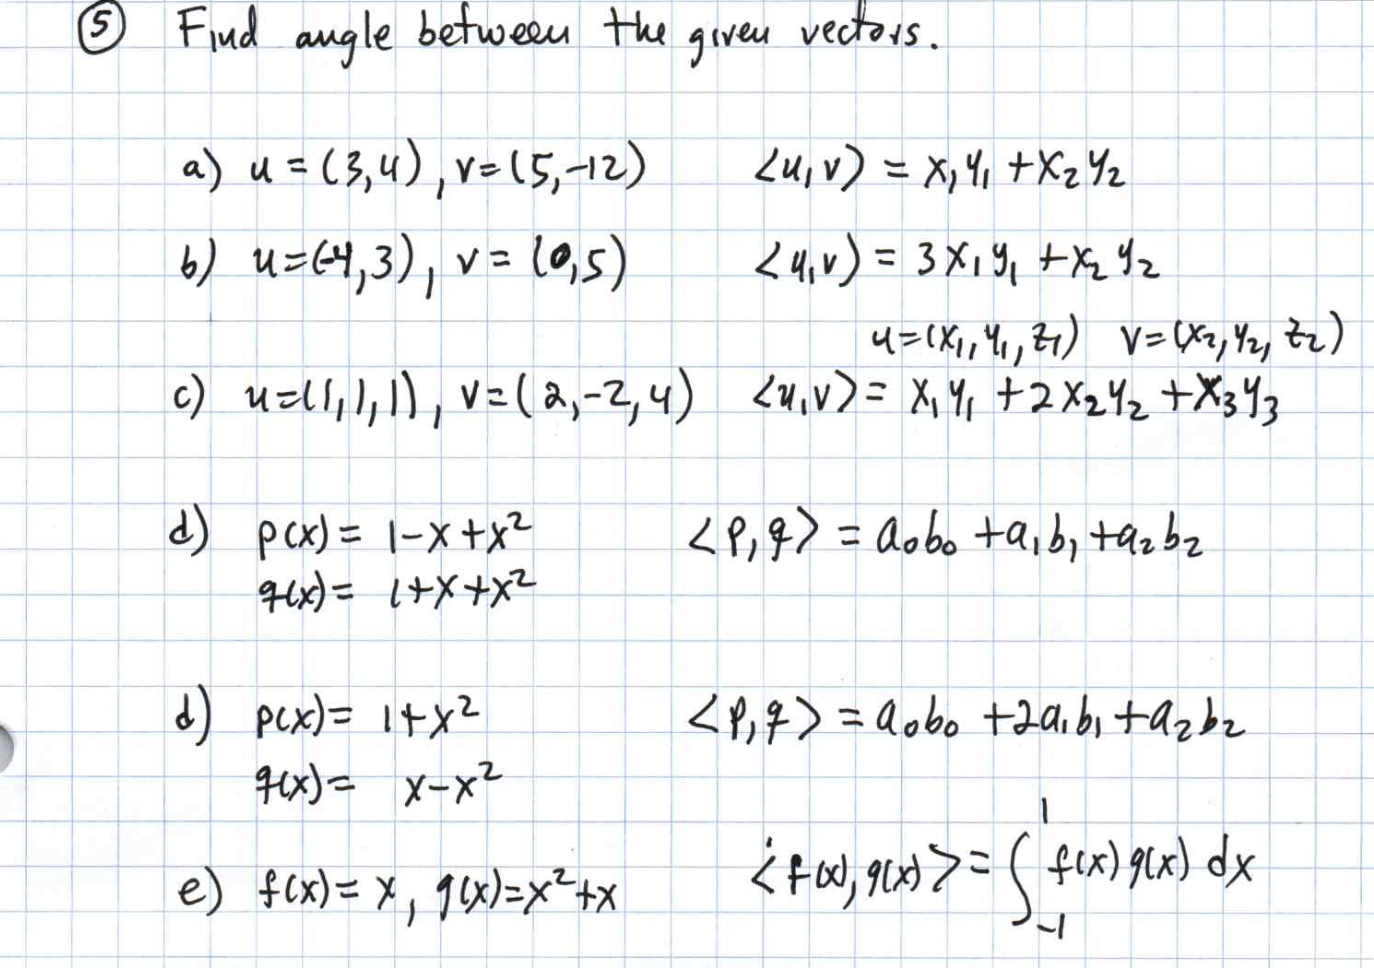 ⑤ Find angle between the given vectors.
a) u = (3,4), v=(5,-12) <u,v> = x₁y₁ + x₂y₂
b) u=(-4,3), v = (0,5) <u,v> = 3x₁y₁ + x₂y₂
u=(x₁,y₁,z₁) v=(x₂,y₂,z₂)
c) u=(1,1,1), v=(2,-2,4) <u,v>= x₁y₁ + 2x₂y₂ + x₃y₃
d) p(x) = 1-x+x² <p,q> = a₀b₀ + a₁b₁ + a₂b₂
q(x) = 1+x+x²
d) p(x) = 1+x² <p,q> = a₀b₀ + 2a₁b₁ + a₂b₂
q(x) = x-x²
e) f(x) = x, g(x)=x²+x <f(x),g(x)> = ∫₋₁¹ f(x) g(x) dx